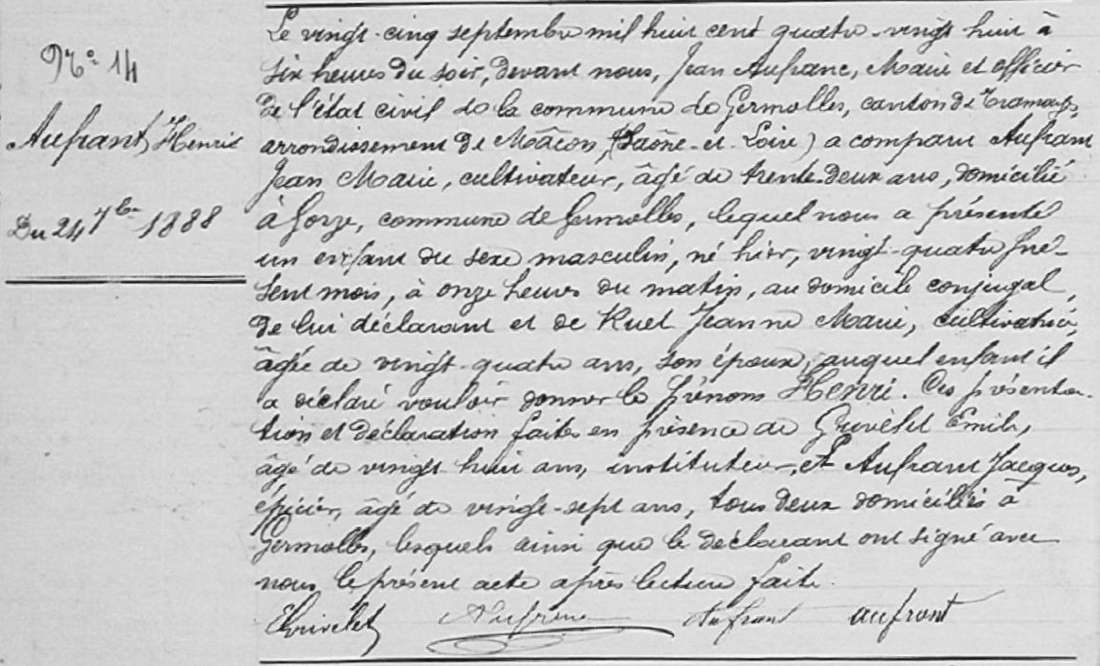 N° 14
Aufrant Henri
Du 24 7bre 1888
Le vingt-cinq septembre mil huit cent quatre-vingt huit à
six heures du soir, devant nous, Jean Aufranc, Maire et officier
de l'état civil de la commune de Germolles, canton de Tramayes,
arrondissement de Mâcon, (Saône-et-Loire) a comparu Aufrant
Jean Marie, cultivateur, âgé de trente-deux ans, domicilié
à Gorze, commune de Germolles, lequel nous a présenté
un enfant du sexe masculin, né hier, vingt-quatre pré-
sent mois, à onze heures du matin, au domicile conjugal,
de lui déclarant et de Ruet Jeanne Marie, cultivatrice,
âgée de vingt-quatre ans, son épouse, auquel enfant il
a déclaré vouloir donner le prénom Henri. Ces présenta-
tion et déclaration faites en présence de Grivelet Emile,
âgé de vingt huit ans, instituteur, et Aufrant Jacques,
épicier, âgé de vingt-sept ans, tous deux domiciliés à
Germolles, lesquels ainsi que le déclarant ont signé avec
nous le présent acte après lecture faite.
EGrivelet Aufranc Aufrant aufront